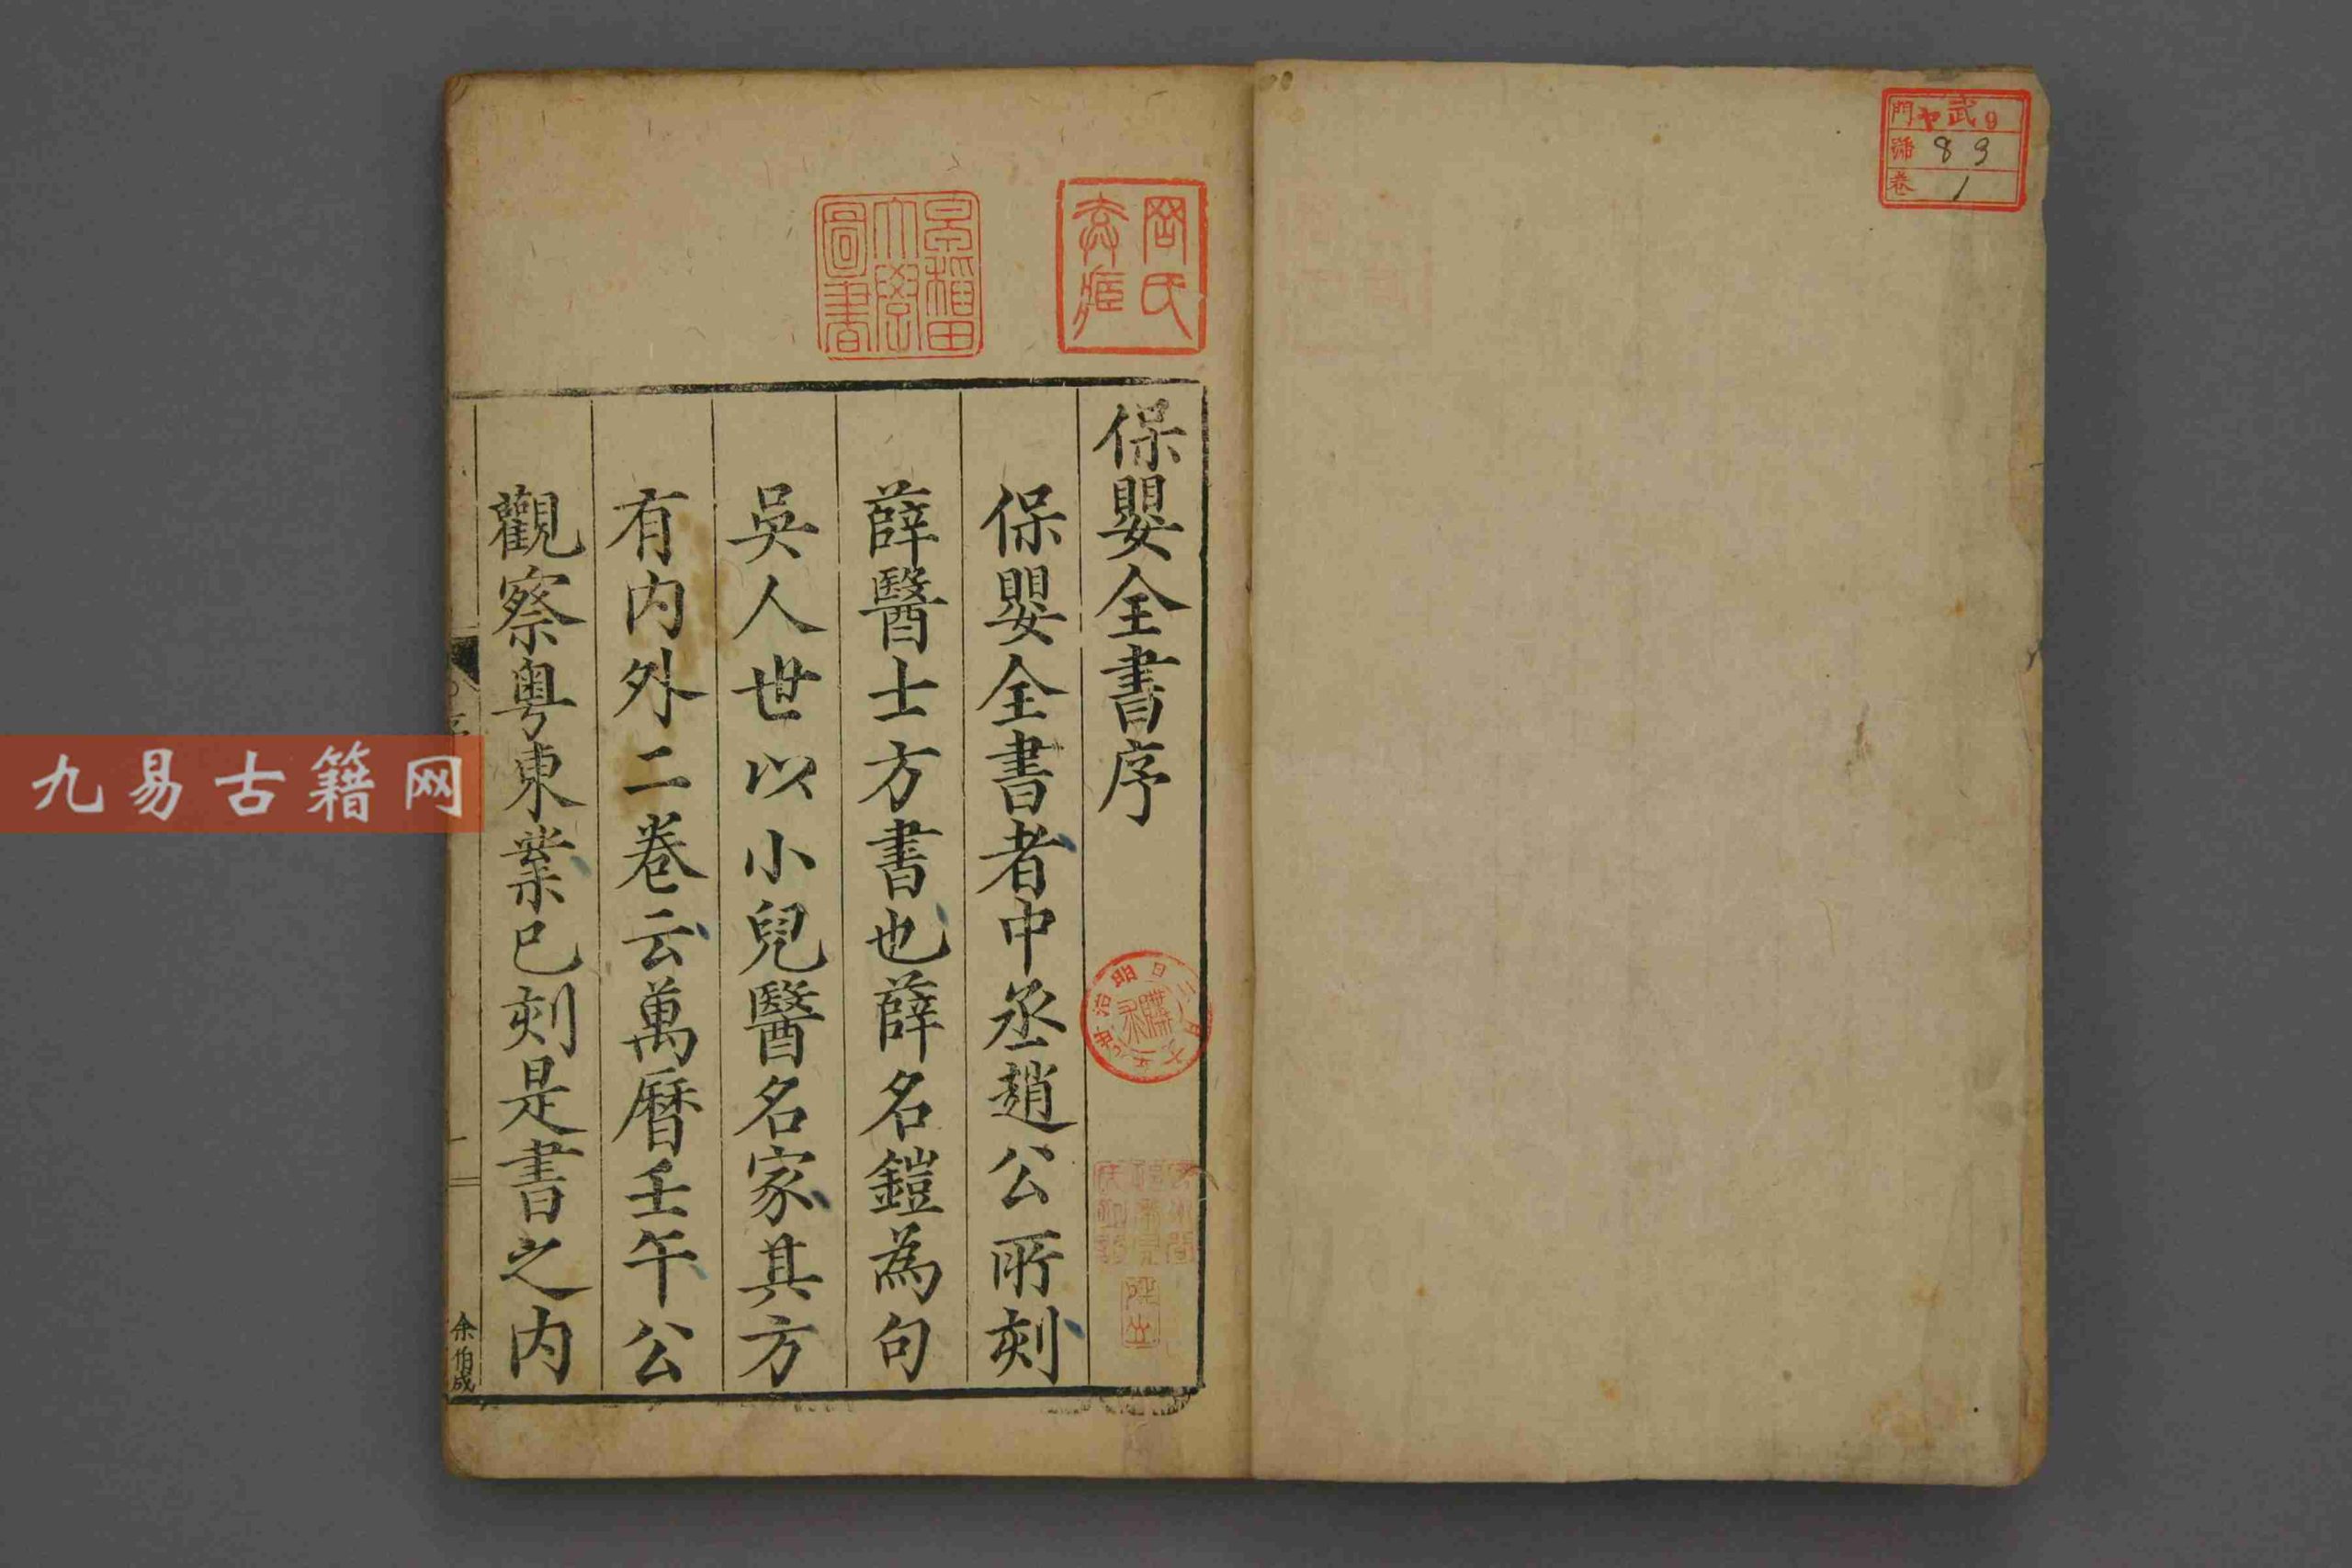 門 ヤ武9
號 89
卷 1
保嬰全書序
保嬰全書者中丞趙公所刻
薛醫士方書也薛名鎧為句
吳人世以小兒醫名家其方
有内外二卷云萬曆壬午公
觀察粤東業已刻是書之内
余伯成
早稲田大學圖書
九易古籍网